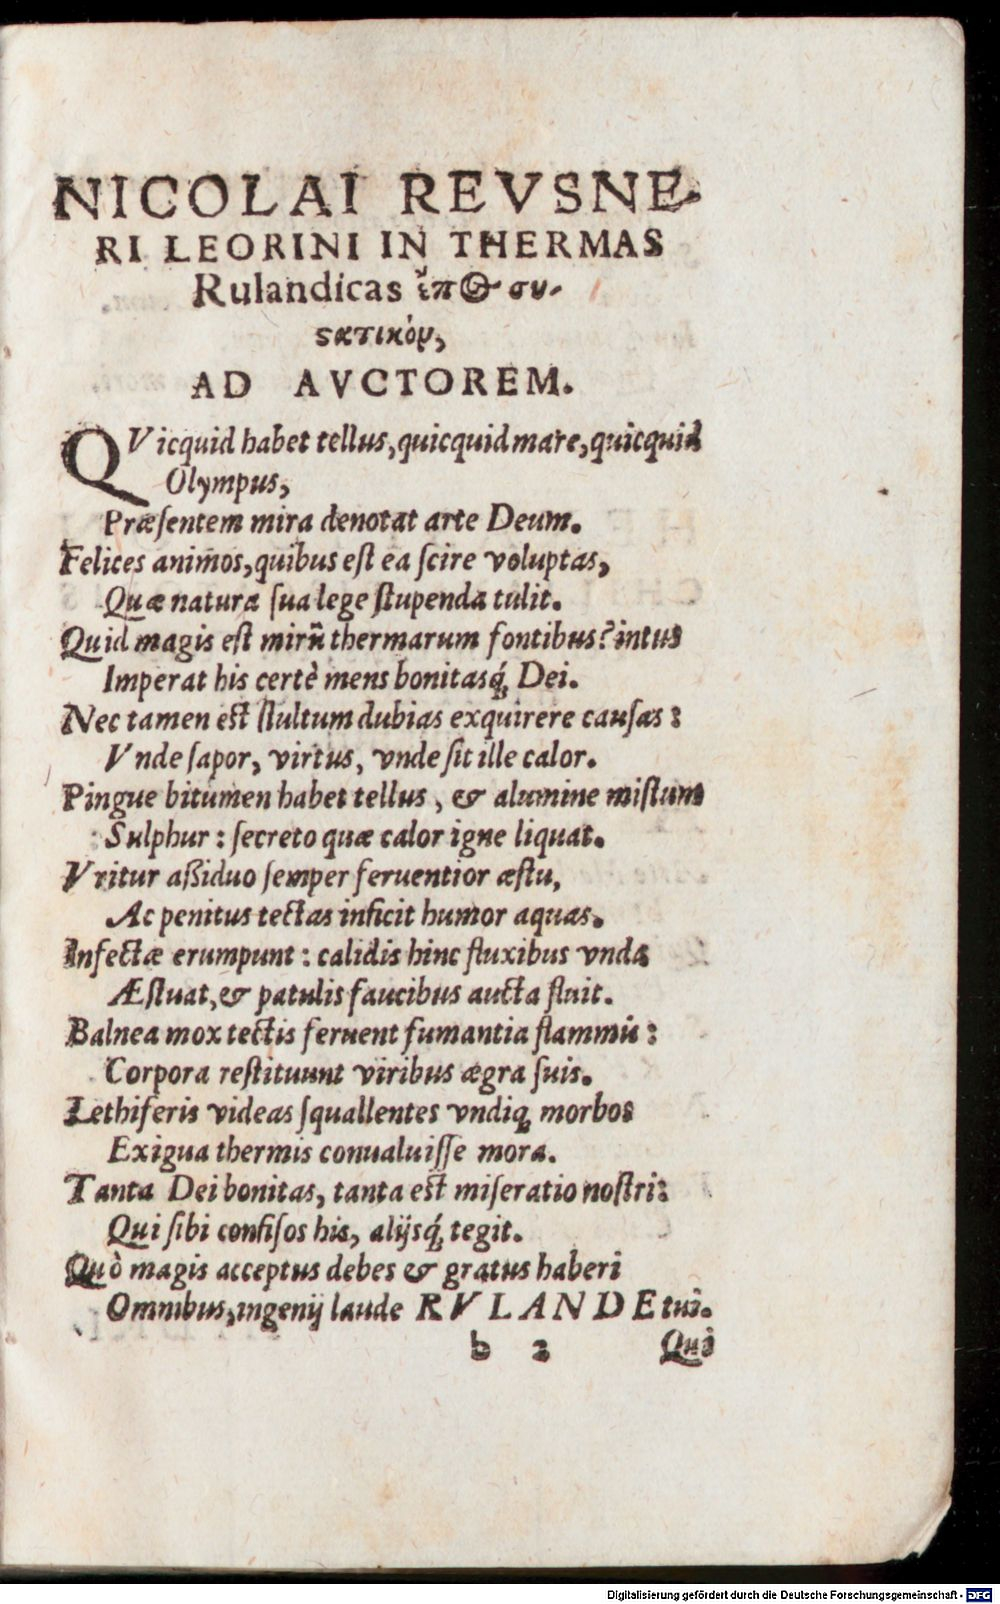 NICOLAI REVSNE-
RI LEORINI IN THERMAS
Rulandicas ἔπος συ-
στατικὸν,
AD AVCTOREM.
QVicquid habet tellus, quicquid mare, quicquid
Olympus,
Præſentem mira denotat arte Deum.
Felices animos, quibus eſt ea ſcire voluptas,
Quæ natura ſua lege ſtupenda tulit.
Quid magis eſt mirũ thermarum fontibus? intus
Imperat his certè mens bonitasq́; Dei.
Nec tamen eſt ſtultum dubias exquirere cauſas:
Vnde ſapor, virtus, vnde ſit ille calor.
Pingue bitumen habet tellus, & alumine miſtum
Sulphur: ſecreto quæ calor igne liquat.
Vritur aßiduo ſemper feruentior æſtu,
Ac penitus tectas inficit humor aquas.
Infectæ erumpunt: calidis hinc fluxibus vnda
Æſtuat, & patulis faucibus aucta fluit.
Balnea mox tectis feruent fumantia flammis:
Corpora reſtituunt viribus ægra ſuis.
Lethiferis videas ſquallentes vndiq; morbos
Exigua thermis conualuiſſe mora.
Tanta Dei bonitas, tanta eſt miſeratio noſtri:
Qui ſibi confiſos his, alijsq́; tegit.
Quò magis acceptus debes & gratus haberi
Omnibus, ingenij laude RVLANDE tui.
b 2 Qui
Digitalisierung gefördert durch die Deutsche Forschungsgemeinschaft - DFG